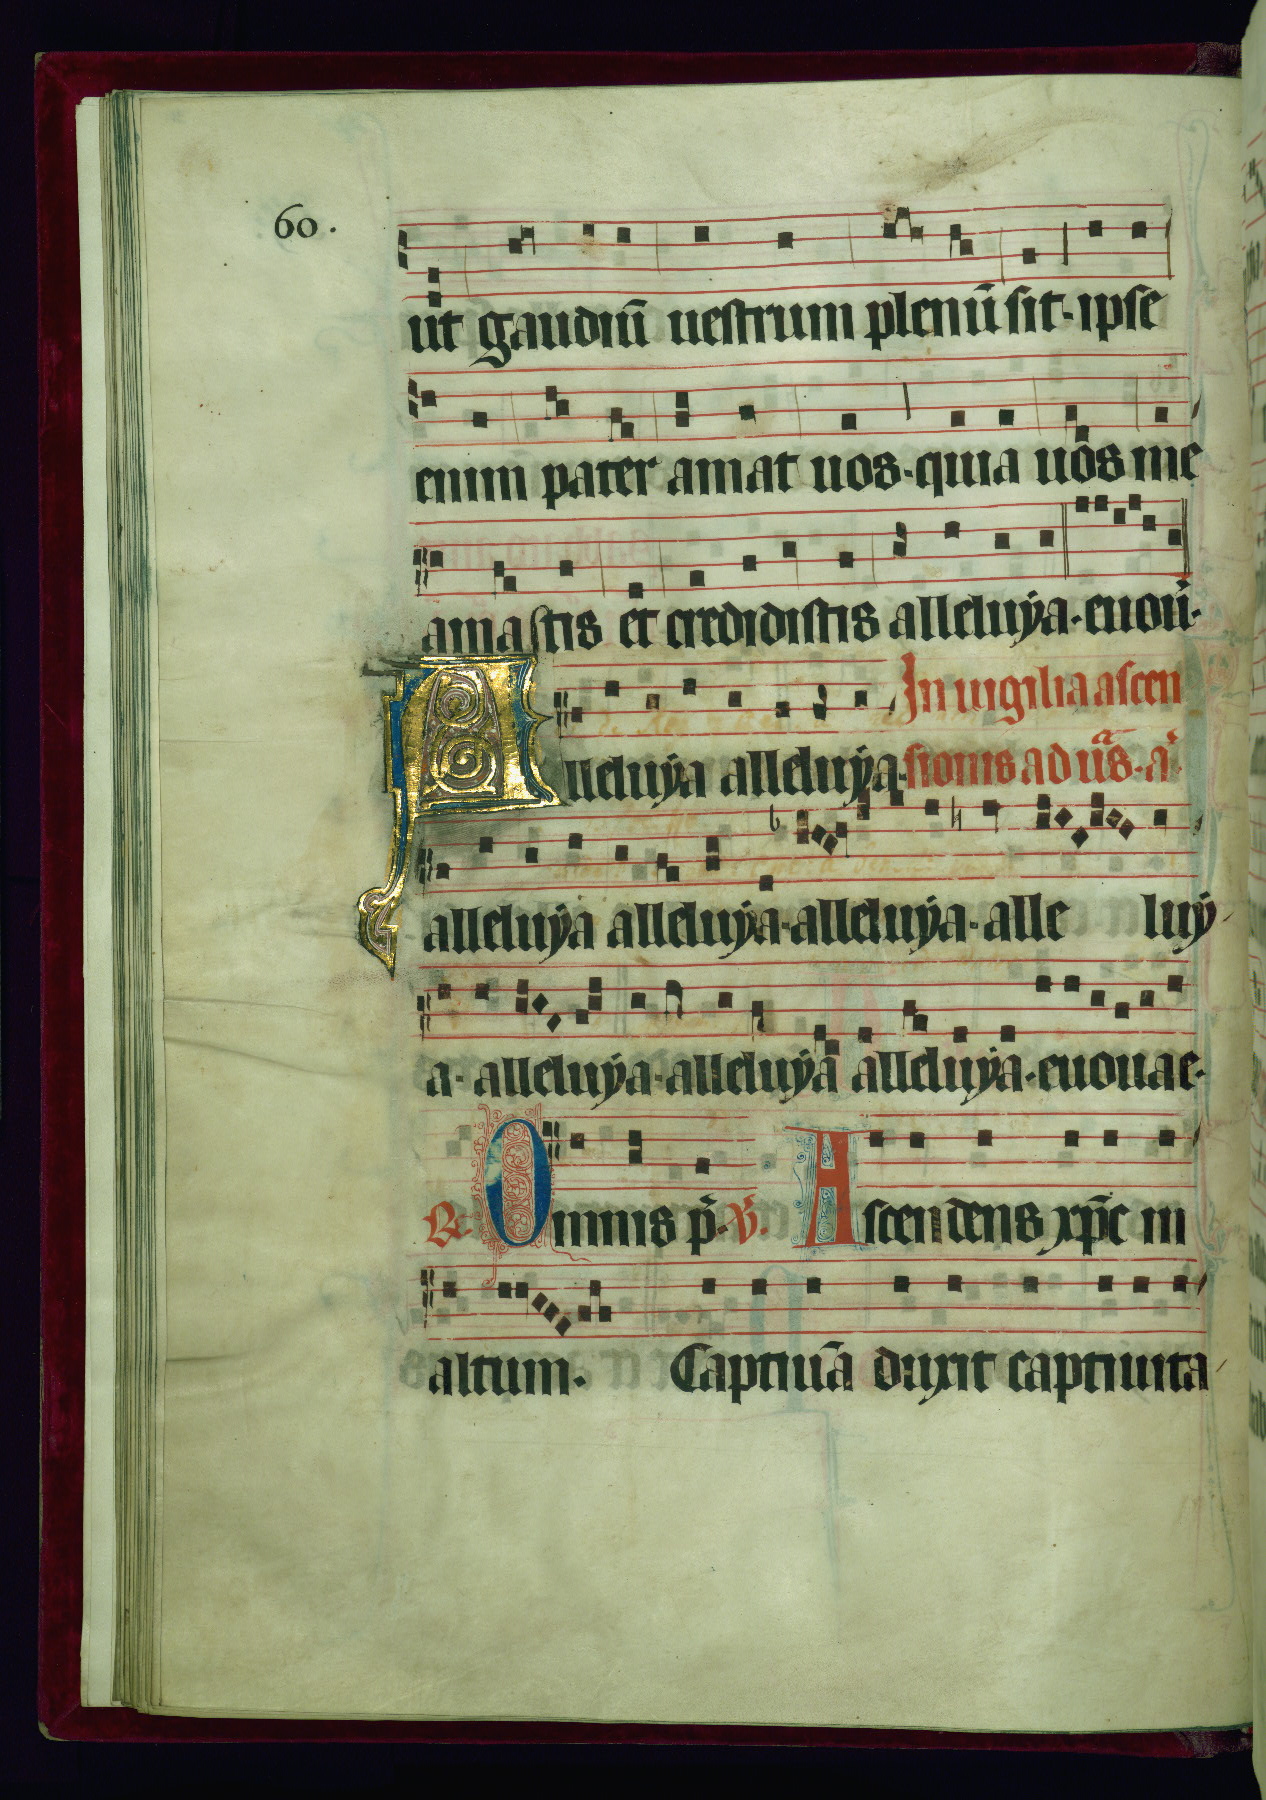 60.
ut gaudiū uestrum plenū sit. ipse
enim pater amat uos. quia uos me
amastis et credidistis alleluẏa. euoū.
In uigilia ascen
Alleluẏa alleluẏa. sionis ad uās. a'
alleluẏa alleluẏa. alleluẏa. alle luẏ
a. alleluẏa. alleluẏa alleluẏa. euouae.
℟ Omnis p̄. ℣. Ascendens xp̄c in
altum. Captiuā duxit captiuita